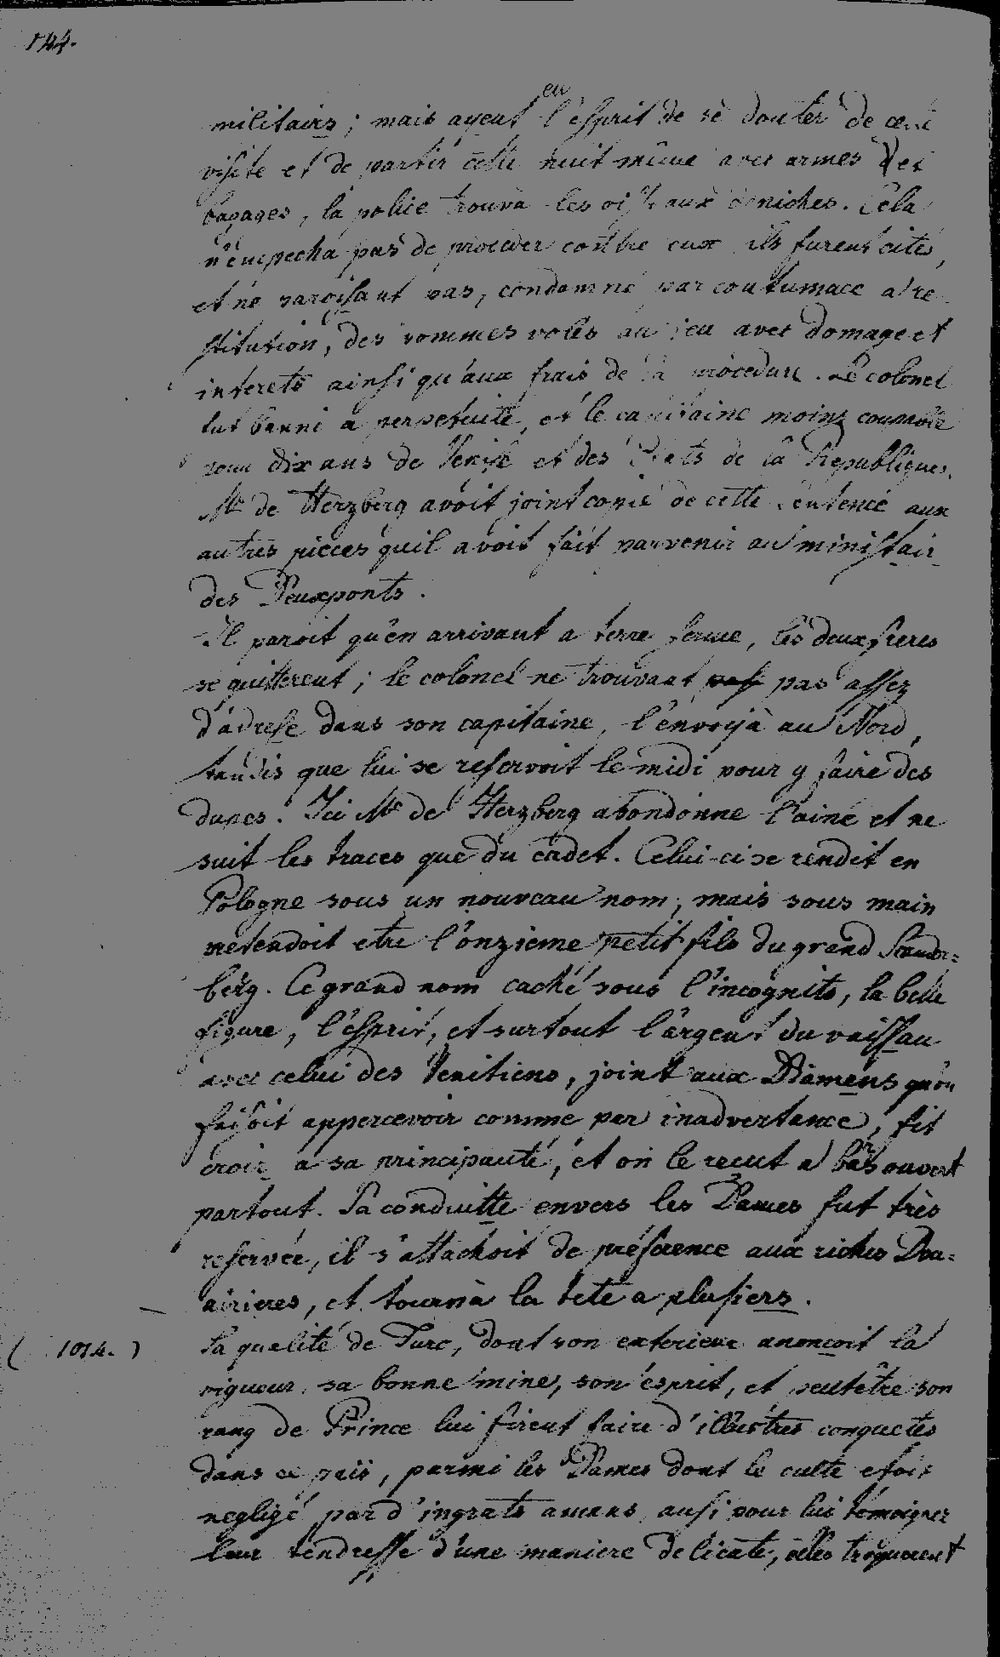 144.
eu
militairs; mais ayent l'esprit de se douter de cette
visite et de partir cette nuit même avec armes et
bagages, la police trouva les oiseaux deniches. Cela
n'empecha pas de proceder contre eux ils furent cités,
et ne paroissant pas, condamné par coutumace a re
stitution, des sommes volés au jeu avec domage et
interets ainsi qu'aux frais de la procedure. Le colonel
fut banni a perpetuité, et le capitaine moins coupable
pour dix ans de Venise et des Etats de la Republique.
Mr de Herzberg avoit joint copie de cette sentence aux
autres pieces quil avoit fait parvenir au ministair
des Deuxponts.
Il paroit qu'en arrivant a terre ferme, les deux freres
se quitterent; le colonel ne trouvant pas assez
d'adresse dans son capitaine, l'envoyà au Nord,
tandis que lui se reservoit le midi pour y faire des
dupes. Ici Mr de Herzberg abondonne l'ainé et ne
suit les traces que du cadet. Celui-ci se rendit en
Pologne sous un nouveau nom, mais sous main
pretendoit etre l'onzieme petit fils du grand Scander=
berg. Ce grand nom caché sous l'incognito, la belle
figure, l'esprit, et surtout l'argent du vaissau
avec celui des Venitiens, joint aux Diamens qu'on
faisoit appercevoir comme par inadvertance, fit
croir a sa principauté, et on le recut a bras ouvert
partout. Sa conduitte envers les Dames fut très
reservée, il s'attachoit de préference aux riches Dou=
airieres, et tournà la tete a plusiers.
( 1014. ) Sa qualité de Turc, dont son exterieur anoncoit la
vigueur, sa bonne mine, son esprit, et peutetre son
rang de Prince lui firent faire d'illustres conquetes
dans ce païs, parmi les Dames dont le culte etoit
negligé par d'ingrats amans, aussi pour lui temoigner
leur tendresse d'une maniere delicate, elles troquerent